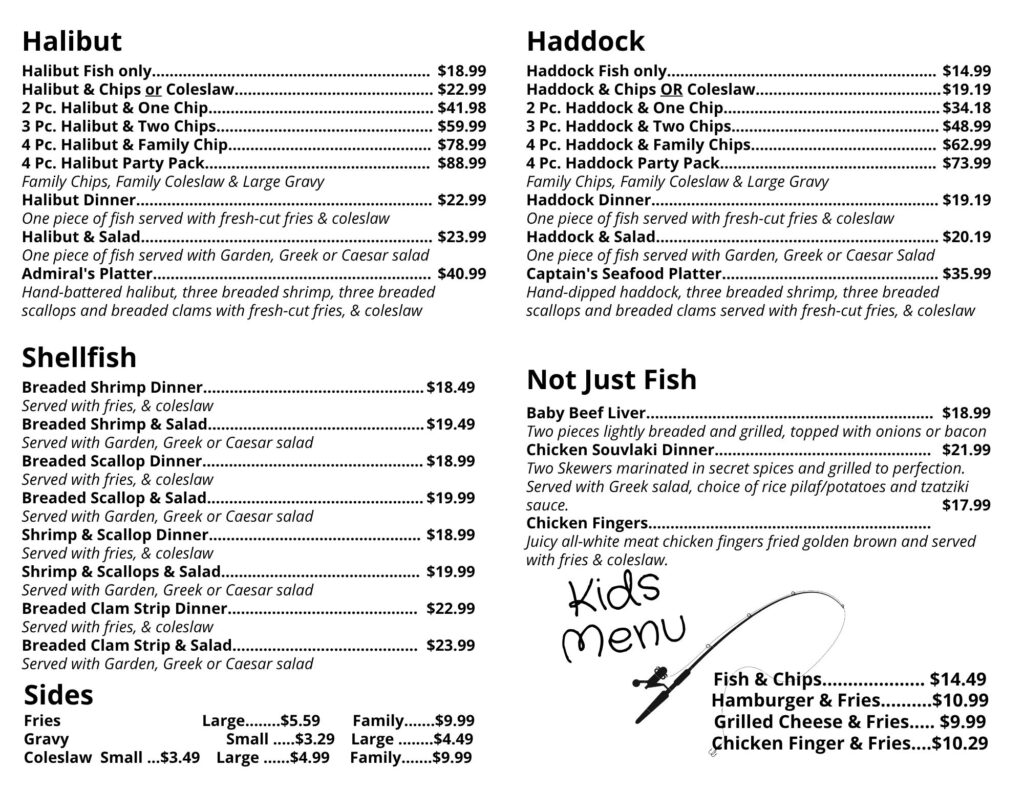 Halibut
Halibut Fish only.............................................................. $18.99
Halibut & Chips or Coleslaw............................................. $22.99
2 Pc. Halibut & One Chip.................................................. $41.98
3 Pc. Halibut & Two Chips................................................ $59.99
4 Pc. Halibut & Family Chip.............................................. $78.99
4 Pc. Halibut Party Pack................................................... $88.99
Family Chips, Family Coleslaw & Large Gravy
Halibut Dinner.................................................................. $22.99
One piece of fish served with fresh-cut fries & coleslaw
Halibut & Salad................................................................. $23.99
One piece of fish served with Garden, Greek or Caesar salad
Admiral's Platter.............................................................. $40.99
Hand-battered halibut, three breaded shrimp, three breaded
scallops and breaded clams with fresh-cut fries, & coleslaw
Shellfish
Breaded Shrimp Dinner.................................................. $18.49
Served with fries, & coleslaw
Breaded Shrimp & Salad................................................. $19.49
Served with Garden, Greek or Caesar salad
Breaded Scallop Dinner.................................................. $18.99
Served with fries, & coleslaw
Breaded Scallop & Salad................................................. $19.99
Served with Garden, Greek or Caesar salad
Shrimp & Scallop Dinner................................................ $18.99
Served with fries, & coleslaw
Shrimp & Scallops & Salad............................................. $19.99
Served with Garden, Greek or Caesar salad
Breaded Clam Strip Dinner........................................... $22.99
Served with fries, & coleslaw
Breaded Clam Strip & Salad.......................................... $23.99
Served with Garden, Greek or Caesar salad
Sides
Fries Large........$5.59 Family.......$9.99
Gravy Small .....$3.29 Large ........$4.49
Coleslaw Small ...$3.49 Large ......$4.99 Family.......$9.99
Haddock
Haddock Fish only............................................................ $14.99
Haddock & Chips OR Coleslaw..........................................$19.19
2 Pc. Haddock & One Chip................................................$34.18
3 Pc. Haddock & Two Chips.............................................. $48.99
4 Pc. Haddock & Family Chips.......................................... $62.99
4 Pc. Haddock Party Pack................................................. $73.99
Family Chips, Family Coleslaw & Large Gravy
Haddock Dinner................................................................ $19.19
One piece of fish served with fresh-cut fries & coleslaw
Haddock & Salad............................................................... $20.19
One piece of fish served with Garden, Greek or Caesar Salad
Captain's Seafood Platter................................................ $35.99
Hand-dipped haddock, three breaded shrimp, three breaded
scallops and breaded clams served with fresh-cut fries, & coleslaw
Not Just Fish
Baby Beef Liver................................................................ $18.99
Two pieces lightly breaded and grilled, topped with onions or bacon
Chicken Souvlaki Dinner................................................ $21.99
Two Skewers marinated in secret spices and grilled to perfection.
Served with Greek salad, choice of rice pilaf/potatoes and tzatziki
sauce. $17.99
Chicken Fingers...............................................................
Juicy all-white meat chicken fingers fried golden brown and served
with fries & coleslaw.
Kids
Menu
Fish & Chips.................... $14.49
Hamburger & Fries..........$10.99
Grilled Cheese & Fries..... $9.99
Chicken Finger & Fries....$10.29